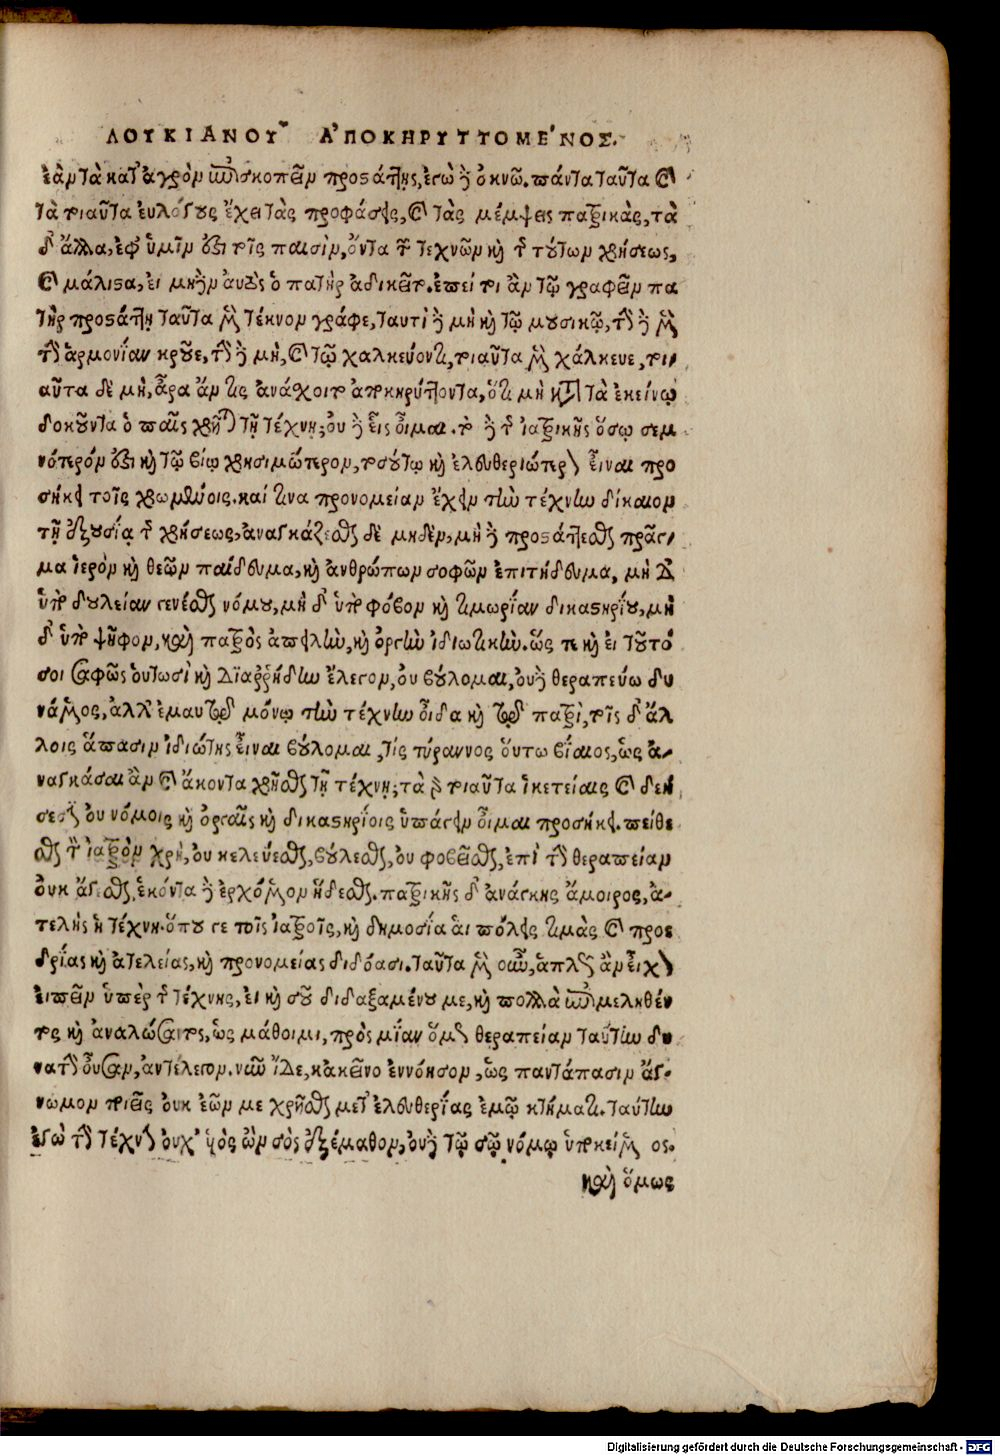 ΛΟΥΚΙΑΝΟΥ ἈΠΟΚΗΡΥΤΤΟΜΕΝΟΣ.
ἐὰν τὰ κατ' ἀγρὸν ἐπισκοπεῖν προστάττῃς, ἐγὼ δὲ ὀκνῶ. πάντα ταῦτα καὶ
τὰ τοιαῦτα εὐλόγους ἔχει τὰς προφάσεις, καὶ τὰς μέμψεις πατρικὰς, τὰ
δ' ἄλλα, ἐφ' ὑμῖν ἐστι τοῖς παισὶν, ὄντα τῶν τεχνῶν καὶ τῆς τούτων χρήσεως,
καὶ μάλιστα, εἰ μηδὲν αὐτὸς ὁ πατὴρ ἀδικεῖτο. ἐπεί τοι ἂν τῷ γραφεῖν πα
τὴρ προστάττῃ ταῦτα μὲν τέκνον γράφε, ταυτὶ δὲ μὴ καὶ τῷ μουσικῷ, τήνδε μὲν
τὴν ἁρμονίαν κροῦε, τήνδε μὴ, καὶ τῷ χαλκεύοντι, τοιαῦτα μὲν χάλκευε, τοι-
αῦτα δὲ μὴ, ἆρα ἄν τις ἀνάσχοιτο ἀποκηρύττοντα, ὅτι μὴ κατὰ τὰ ἐκείνῳ
δοκοῦντα ὁ παῖς χρῆται τῇ τέχνῃ; οὐδεὶς οἶμαι. τὸ δὲ τῆς ἰατρικῆς ὅσῳ σεμ
νότερόν ἐστι καὶ τῷ βίῳ χρησιμώτερον, τοσούτῳ καὶ ἐλευθεριώτερον εἶναι προ
σήκει τοῖς χρωμένοις. καί τινα προνομείαν ἔχειν τὴν τέχνην δίκαιον
τῇ ἐξουσίᾳ τῆς χρήσεως, ἀναγκάζεσθαι δὲ μηδὲν, μηδὲ προστάττεσθαι πρᾶγ-
μα ἱερὸν καὶ θεῶν παίδευμα, καὶ ἀνθρώπων σοφῶν ἐπιτήδευμα, μηδ'
ὑπὸ δουλείαν γενέσθαι νόμου, μὴ δ' ὑπὸ φόβον καὶ τιμωρίαν δικαστηρίου, μὴ
δ' ὑπὸ ψῆφον, καὶ πατρὸς ἀπειλὴν, καὶ ὀργὴν ἰδιωτικὴν. ὥστε καὶ εἰ τοῦτό
σοι σαφῶς οὑτωσὶ καὶ διαρρήδην ἔλεγον, οὐ βούλομαι, οὐδὲ θεραπεύω δυ
νάμενος, ἀλλ' ἐμαυτῷ μόνῳ τὴν τέχνην οἶδα καὶ τῷ πατρὶ, τοῖς δ' ἄλ
λοις ἅπασιν ἰδιώτης εἶναι βούλομαι, τίς τύραννος οὕτω βίαιος, ὡς ἀ-
ναγκάσαι ἂν καὶ ἄκοντα χρῆσθαι τῇ τέχνῃ; τὰ γὰρ τοιαῦτα ἱκετείαις καὶ δεή
σεσιν οὐ νόμοις καὶ ὀργαῖς καὶ δικαστηρίοις ὑπάγειν οἶμαι προσήκει. πείθε
σθαι τὸν ἰατρὸν χρὴ, οὐ κελεύεσθαι, βούλεσθαι, οὐ φοβεῖσθαι, ἐπὶ τὴν θεραπείαν
οὐκ ἄγεσθαι, ἑκόντα δὲ ἐρχόμενον ἥδεσθαι. πατρικῆς δ' ἀνάγκης ἄμοιρος, ἀ-
τελὴς ἡ τέχνη. ὅπου γε τοῖς ἰατροῖς, καὶ δημοσίᾳ αἱ πόλεις τιμὰς καὶ προε
δρίας καὶ ἀτελείας, καὶ προνομείας διδόασι. ταῦτα μὲν οὖν, ἁπλῶς ἂν εἶχον
εἰπεῖν ὑπὲρ τῆς τέχνης, εἰ καὶ σοῦ διδαξαμένου με, καὶ πολλὰ ἐπιμεληθέν
τος καὶ ἀναλώσαντος, ὡς μάθοιμι, πρὸς μίαν ὅμως θεραπείαν ταύτην δυ
νατὴν οὖσαν, ἀντέλεγον. νῦν ἴδε, κἀκεῖνο ἐννόησον, ὡς παντάπασιν ἄγ-
νωμον ποιεῖς οὐκ ἐῶν με χρῆσθαι μετ' ἐλευθερίας ἐμῷ κτήματι. ταύτην
ἐγὼ τὴν τέχνην οὐχ' υἱὸς ὢν σὸς ἐξέμαθον, οὐδὲ τῷ σῷ νόμῳ ὑποκείμενος.
καὶ ὅμως
Digitalisierung gefördert durch die Deutsche Forschungsgemeinschaft - DFG